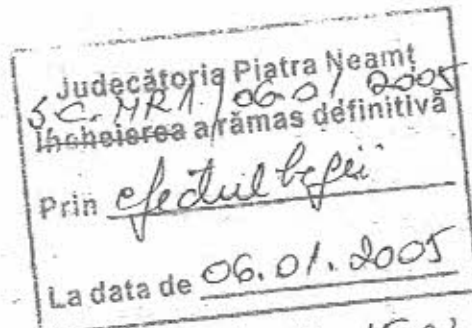 Judecătoria Piatra Neamț
S.C. MR1/06.01 2005
Încheierea a rămas definitivă
Prin efectul legii
La data de 06.01.2005